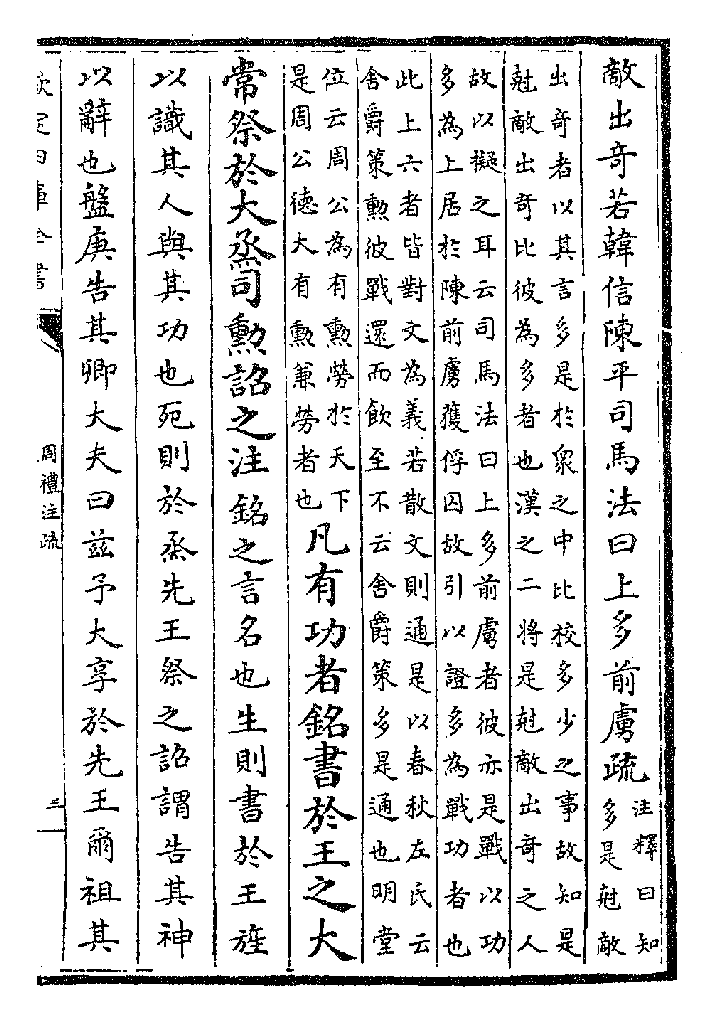 敵出奇若韓信陳平司馬法曰上多前虜疏
注釋曰知
多是尅敵
出奇者以其言多是於衆之中比校多少之事故知是
尅敵出奇比彼為多者也漢之二將是尅敵出奇之人
故以擬之耳云司馬法曰上多前虜者彼亦是戰以功
多為上居於陳前虜獲俘囚故引以證多為戰功者也
此上六者皆對文為義若散文則通是以春秋左氏云
舍爵策勲彼戰還而飲至不云舍爵策多是通也明堂
位云周公為有勲勞於天下
是周公德大有勲兼勞者也
凡有功者銘書於王之大
常祭於大烝司勲詔之注銘之言名也生則書於王旌
以識其人與其功也死則於烝先王祭之詔謂告其神
以辭也盤庚告其卿大夫曰兹予大享於先王爾祖其
欽定四庫全書
周禮注疏
三